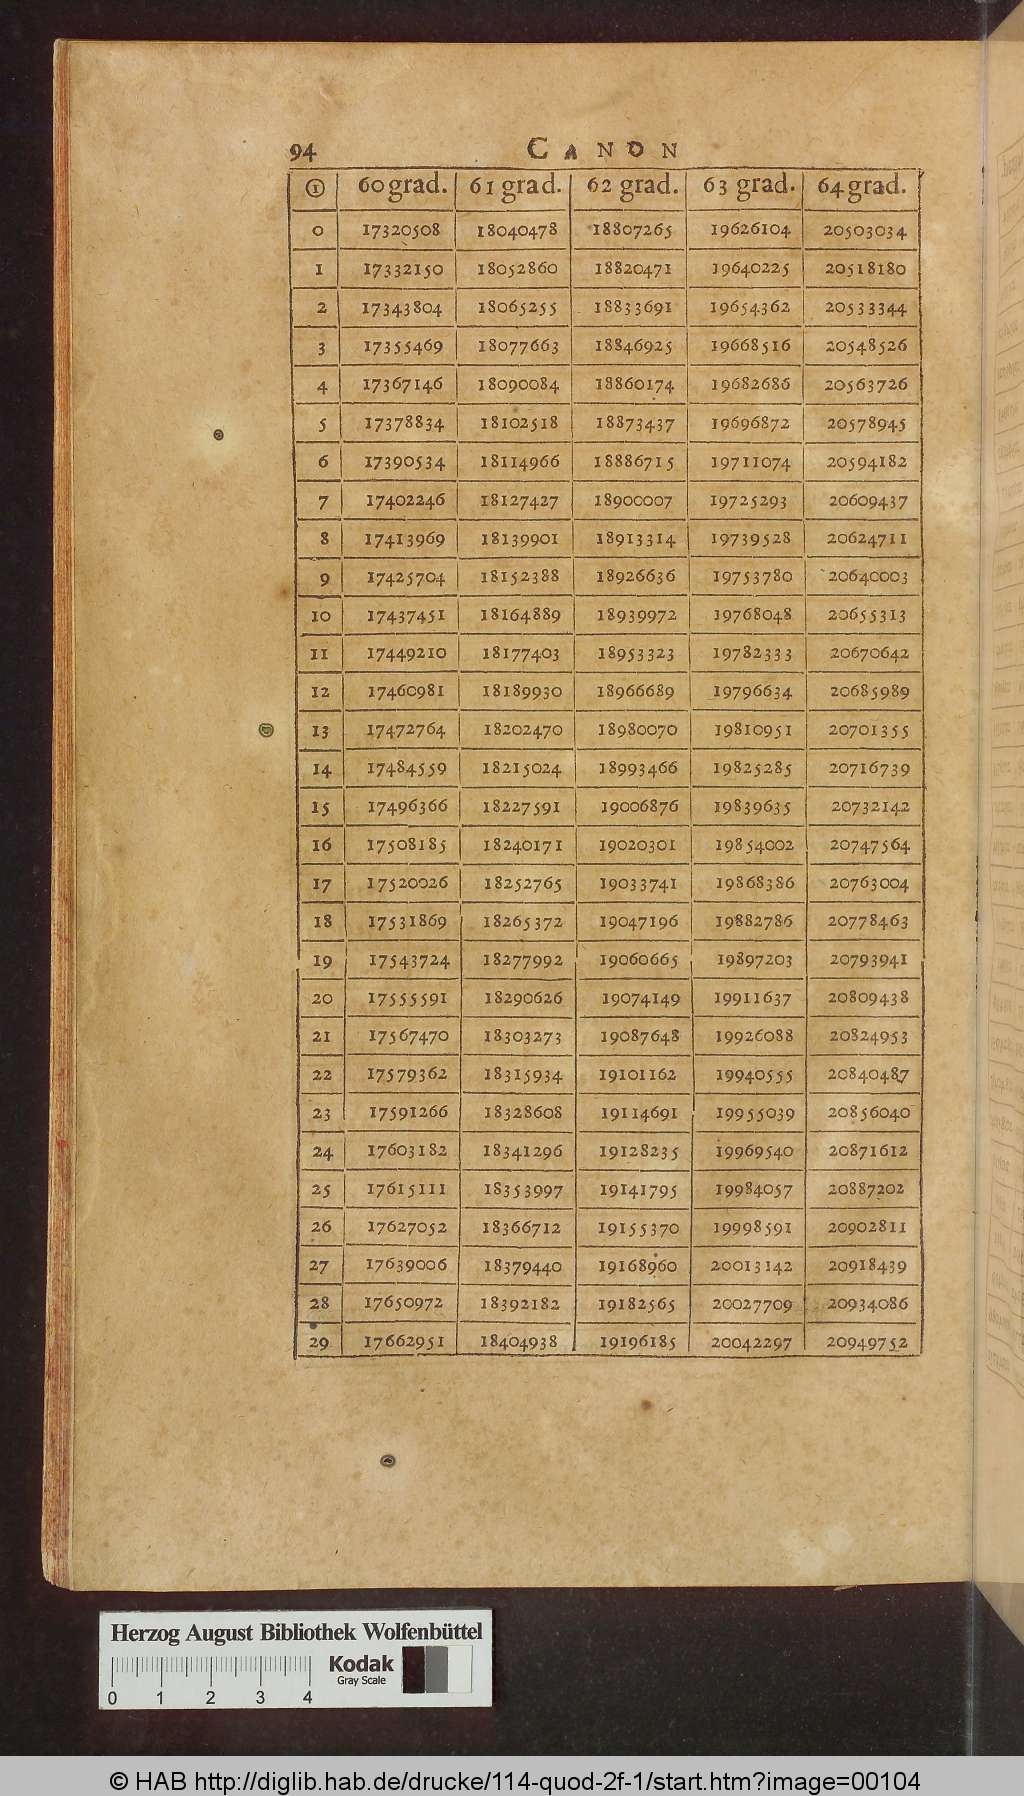 94 CANON
① 60 grad. 61 grad. 62 grad. 63 grad. 64 grad.
0 17320508 18040478 18807265 19626104 20503034
1 17332150 18052860 18820471 19640225 20518180
2 17343804 18065255 18833691 19654362 20533344
3 17355469 18077663 18846925 19668516 20548526
4 17367146 18090084 18860174 19682686 20563726
5 17378834 18102518 18873437 19696872 20578945
6 17390534 18114966 18886715 19711074 20594182
7 17402246 18127427 18900007 19725293 20609437
8 17413969 18139901 18913314 19739528 20624711
9 17425704 18152388 18926636 19753780 20640003
10 17437451 18164889 18939972 19768048 20655313
11 17449210 18177403 18953323 19782333 20670642
12 17460981 18189930 18966689 19796634 20685989
13 17472764 18202470 18980070 19810951 20701355
14 17484559 18215024 18993466 19825285 20716739
15 17496366 18227591 19006876 19839635 20732142
16 17508185 18240171 19020301 19854002 20747564
17 17520026 18252765 19033741 19868386 20763004
18 17531869 18265372 19047196 19882786 20778463
19 17543724 18277992 19060665 19897203 20793941
20 17555591 18290626 19074149 19911637 20809438
21 17567470 18303273 19087648 19926088 20824953
22 17579362 18315934 19101162 19940555 20840487
23 17591266 18328608 19114691 19955039 20856040
24 17603182 18341296 19128235 19969540 20871612
25 17615111 18353997 19141795 19984057 20887202
26 17627052 18366712 19155370 19998591 20902811
27 17639006 18379440 19168960 20013142 20918439
28 17650972 18392182 19182565 20027709 20934086
29 17662951 18404938 19196185 20042297 20949752
Herzog August Bibliothek Wolfenbüttel
Kodak
Gray Scale
0 1 2 3 4
© HAB http://diglib.hab.de/drucke/114-quod-2f-1/start.htm?image=00104